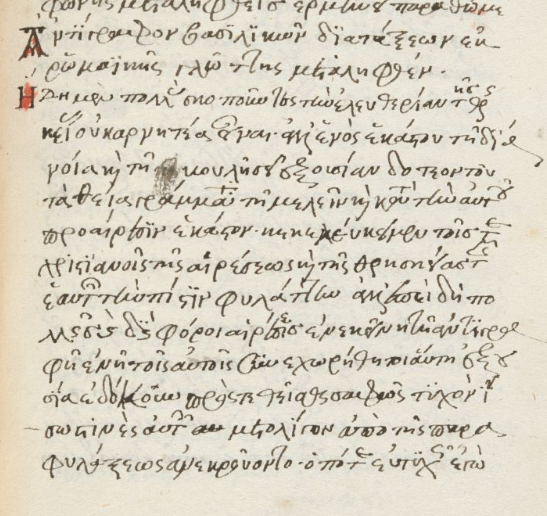 φωνῆς μεταληφθεῖσ
Ἀντίγραφον βασιλικῶν διατάξεων ἐκ
ῥωμαϊκῆς γλώττης μεταληφθέν.
Ἤδη μὲν πάλαι σκοποῦντες τὴν ἐλευθερίαν τῆς θρησ
κείας οὐκ ἀρνητέαν εἶναι· ἀλλ' ἑνὸς ἑκάστου τῇ δια
νοίᾳ καὶ τῇ βουλήσει ἐξουσίαν δοτέον τοῦ
τὰ θεῖα πράγματα τημελεῖν κατὰ τὴν αὐτοῦ
προαίρεσιν ἕκαστον· κεκελεύκειμεν τοῖς τε
χριστιανοῖς τῆς αἱρέσεως καὶ τῆς θρησκείας τῆς
ἑαυτῶν τὴν πίστιν φυλάττειν· ἀλλ' ἐπειδὴ πο
λλαὶ καὶ διάφοροι αἱρέσεις ἐν ἐκείνῃ τῇ ἀντιγρα
φῇ ἐν ᾗ τοῖς αὐτοῖς συνεχωρήθη τοιαύτη ἐξου
σία ἐδόκουν προστεθεῖσθαι σαφῶς τυχὸν ἴ
σως τινὲς αὐτῶν μετ' ὀλίγον ἀπὸ τῆς παρα
φυλάξεως ἀνεκρούοντο· ὁπότε εὐτυχῶς ἐγὼ